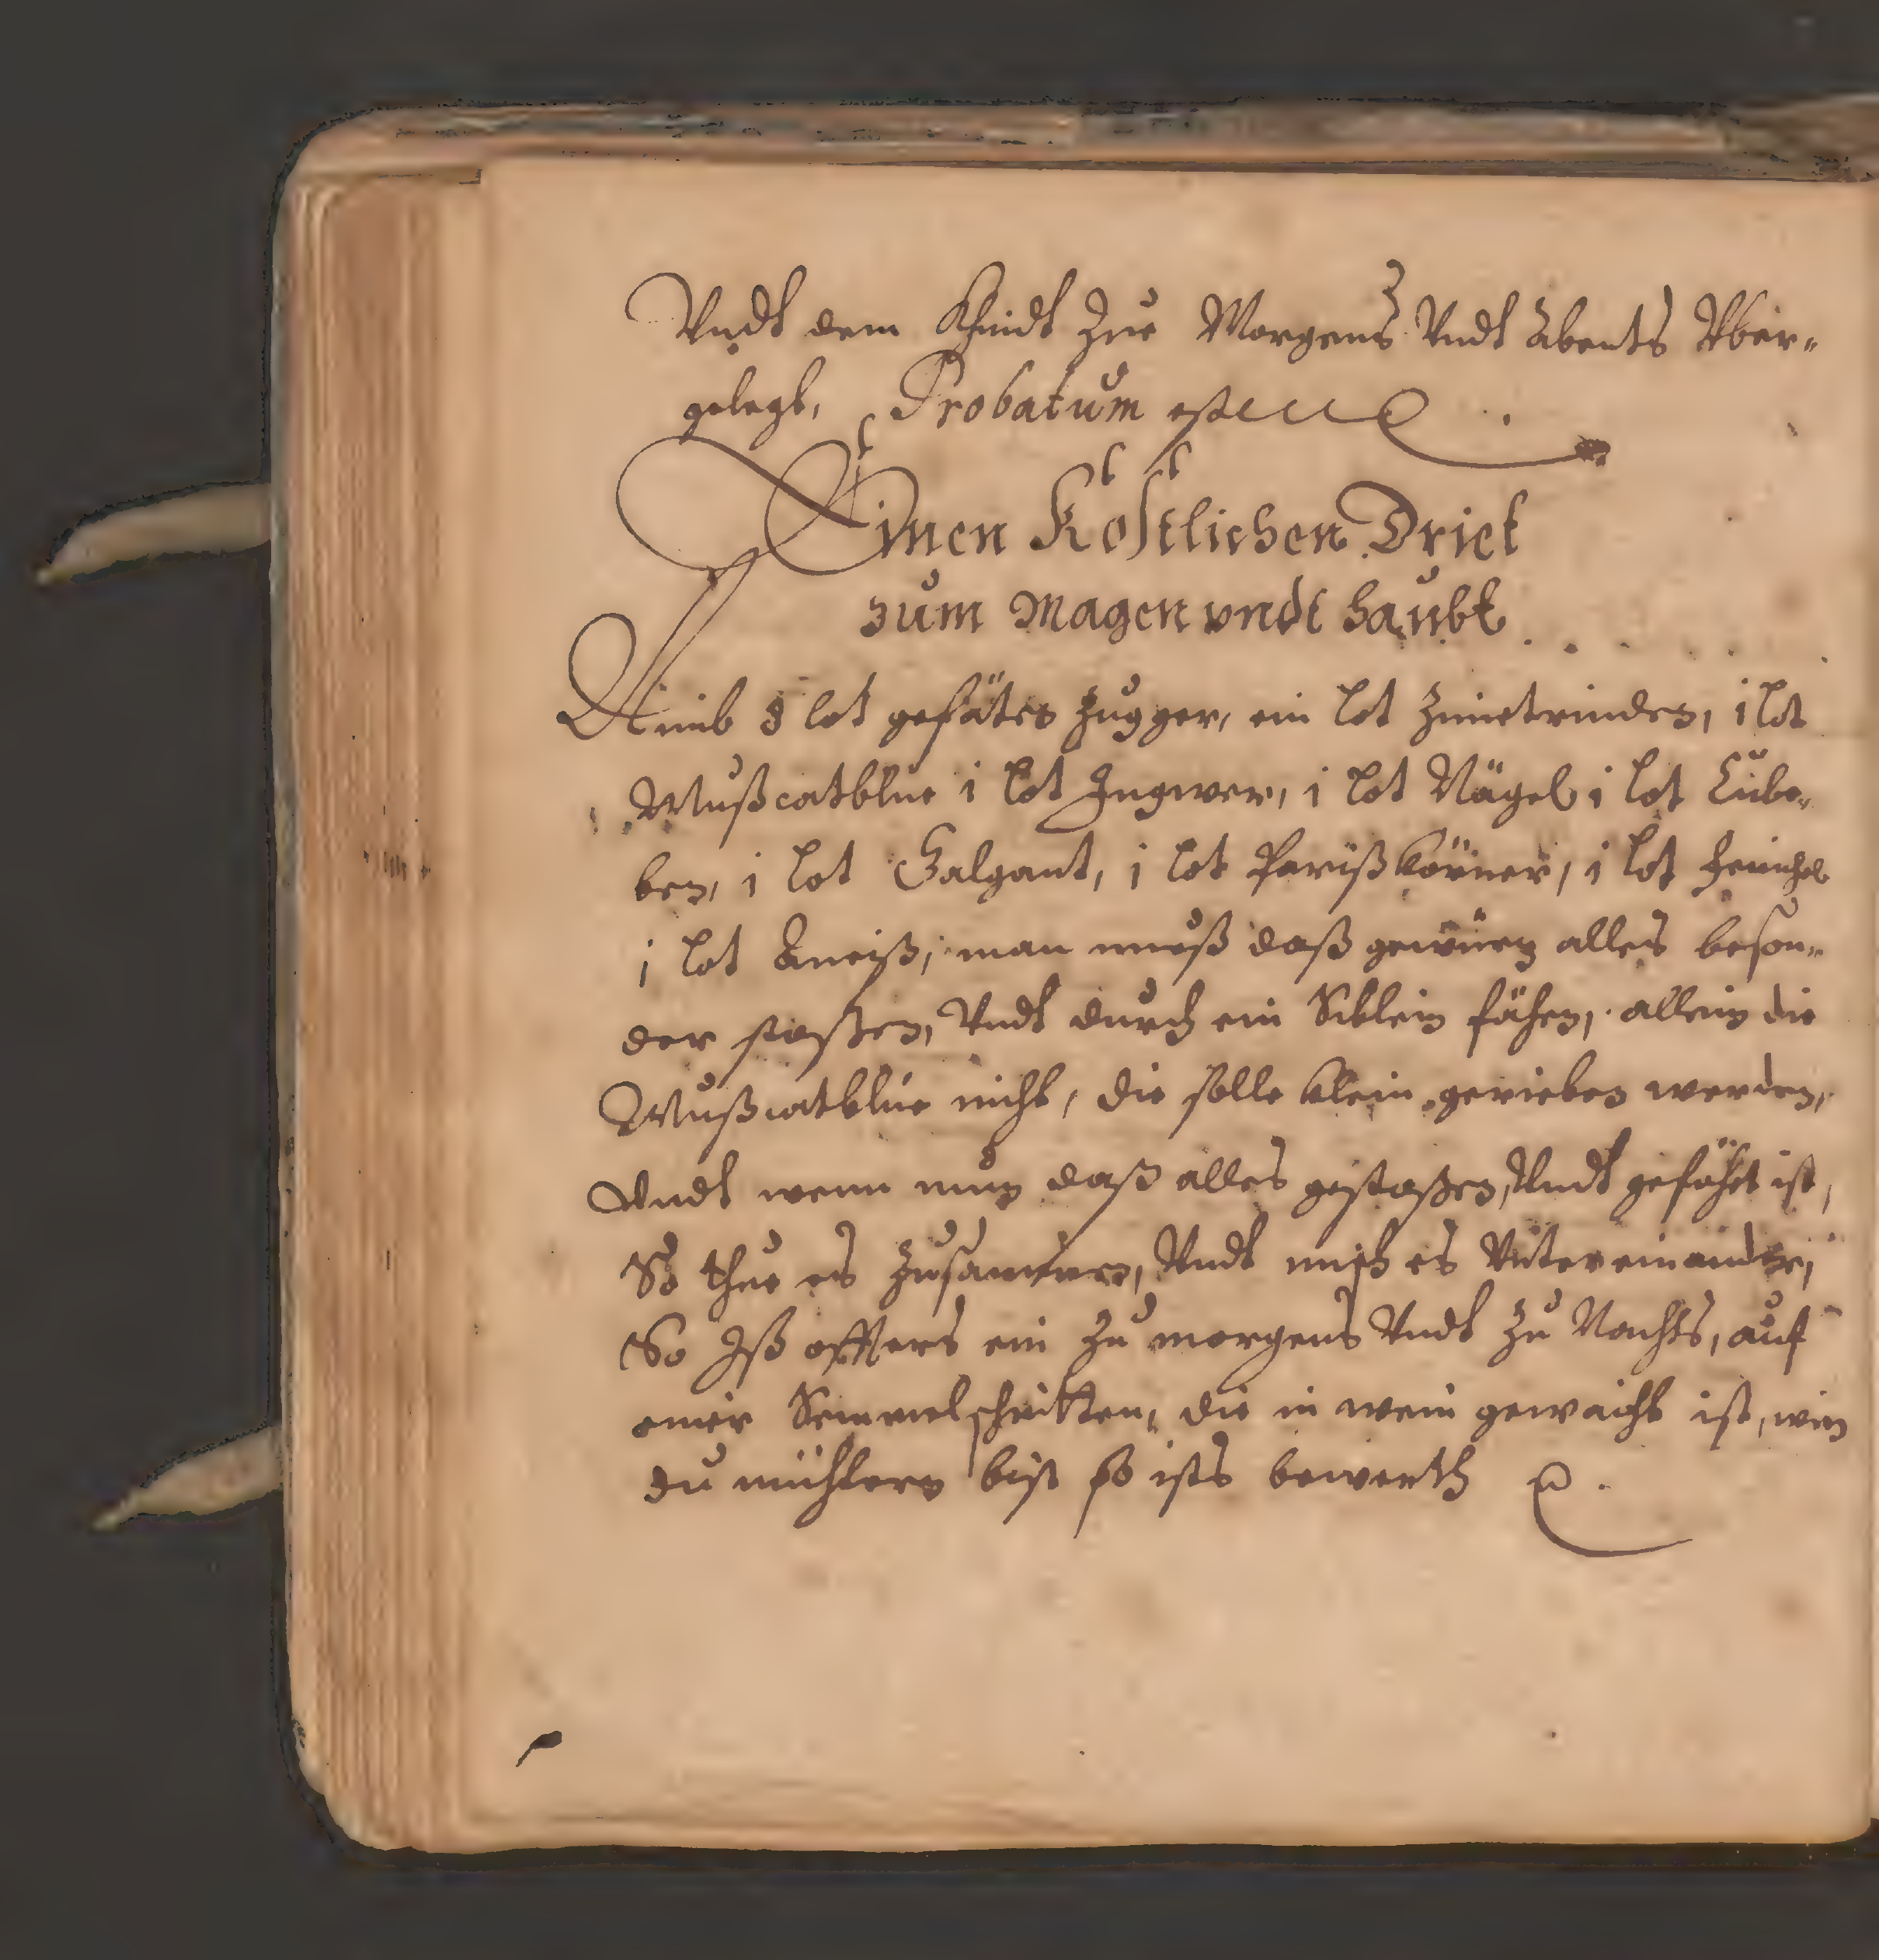 Vndt dem Khindt Zue Morgens Vndt Abents Vber„
gelegt, Probatum est
Einen Köstlichen Triet
zum Magen vndt haubt
Nimb 8 lot gefätes Zugger, ein lot Zimetrinden, i lot
Mußcatblüe i lot Ingwer, i lot Nägel i lot Cube„
ben, i lot Galgant, i lot Parißkörner, i lot Fenichel
i lot Aneiß, man mueß daß gewürtz alles beson„
der stoßen, Vndt durch ein Siblein fähen, allein die
Mußcatblüe nicht, die solle klein gerieben werden,
Vndt wenn nun daß alles gestoßen, Vndt gefäht ist,
So thue es Zusammen, Vndt misch es Vntereinander,
So Iß offters ein Zu morgens Vndt Zu Nachts, auf
einer Semmelschnitten, die in wein gewaicht ist, wen
du nüchtern bist so ists bewerth